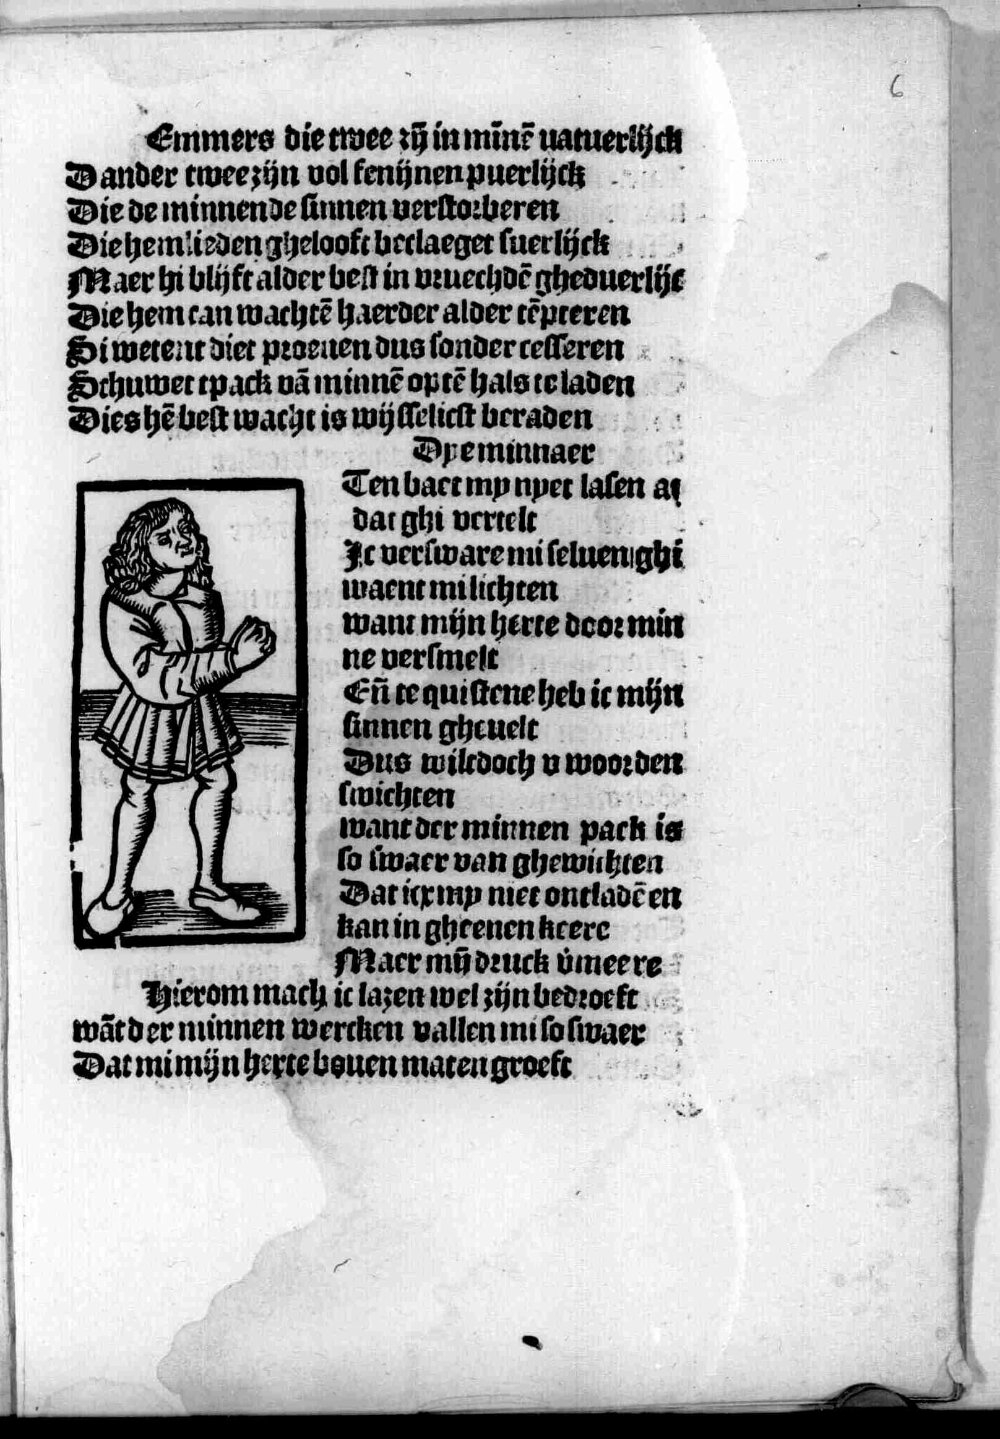 6
Emmers die twee zȳ in mīnē natuerlijck
Dander twee zijn vol fenijnen puerlijck
Die de minnende sinnen verstorberen
Die hemlieden ghelooft beclaeget suerlijck
Maer hi blijft alder best in vruechdē gheduerlijc
Die hem can wachtē haerder alder tēpteren
Si wetent diet proeuen dus sonder cesseren
Schuwet tpack vā minnē op tē hals te laden
Dies hē best wacht is wijsselicst beraden
Dye minnaer
Ten baet my nyet lasen al
dat ghi vertelt
Ic versware mi seluen ghi
waent mi lichten
want mijn herte door min
ne versmelt
Eñ te quistene heb ic mijn
sinnen gheuelt
Dus wilt doch v woorden
swichten
want der minnen pack is
so swaer van ghewichten
Dat icx my niet ontladē en
kan in gheenen keere
Maer mȳ druck v̄meere
Hierom mach ic lazen wel zijn bedroeft
wāt der minnen wercken vallen mi so swaer
Dat mi mijn herte bouen maten groeft